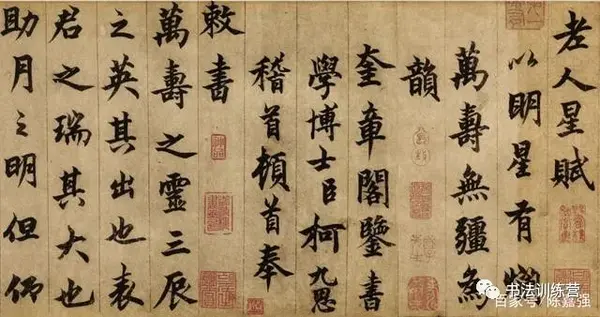 老人星賦
以明星有爛
萬壽無疆為
韻
奎章閣鑒書
學博士臣柯九思
稽首頓首奉
敕書
萬壽之靈三辰
之英其出也表
君之瑞其大也
助月之明但仰
书法训练营
百家号/陈嘉强